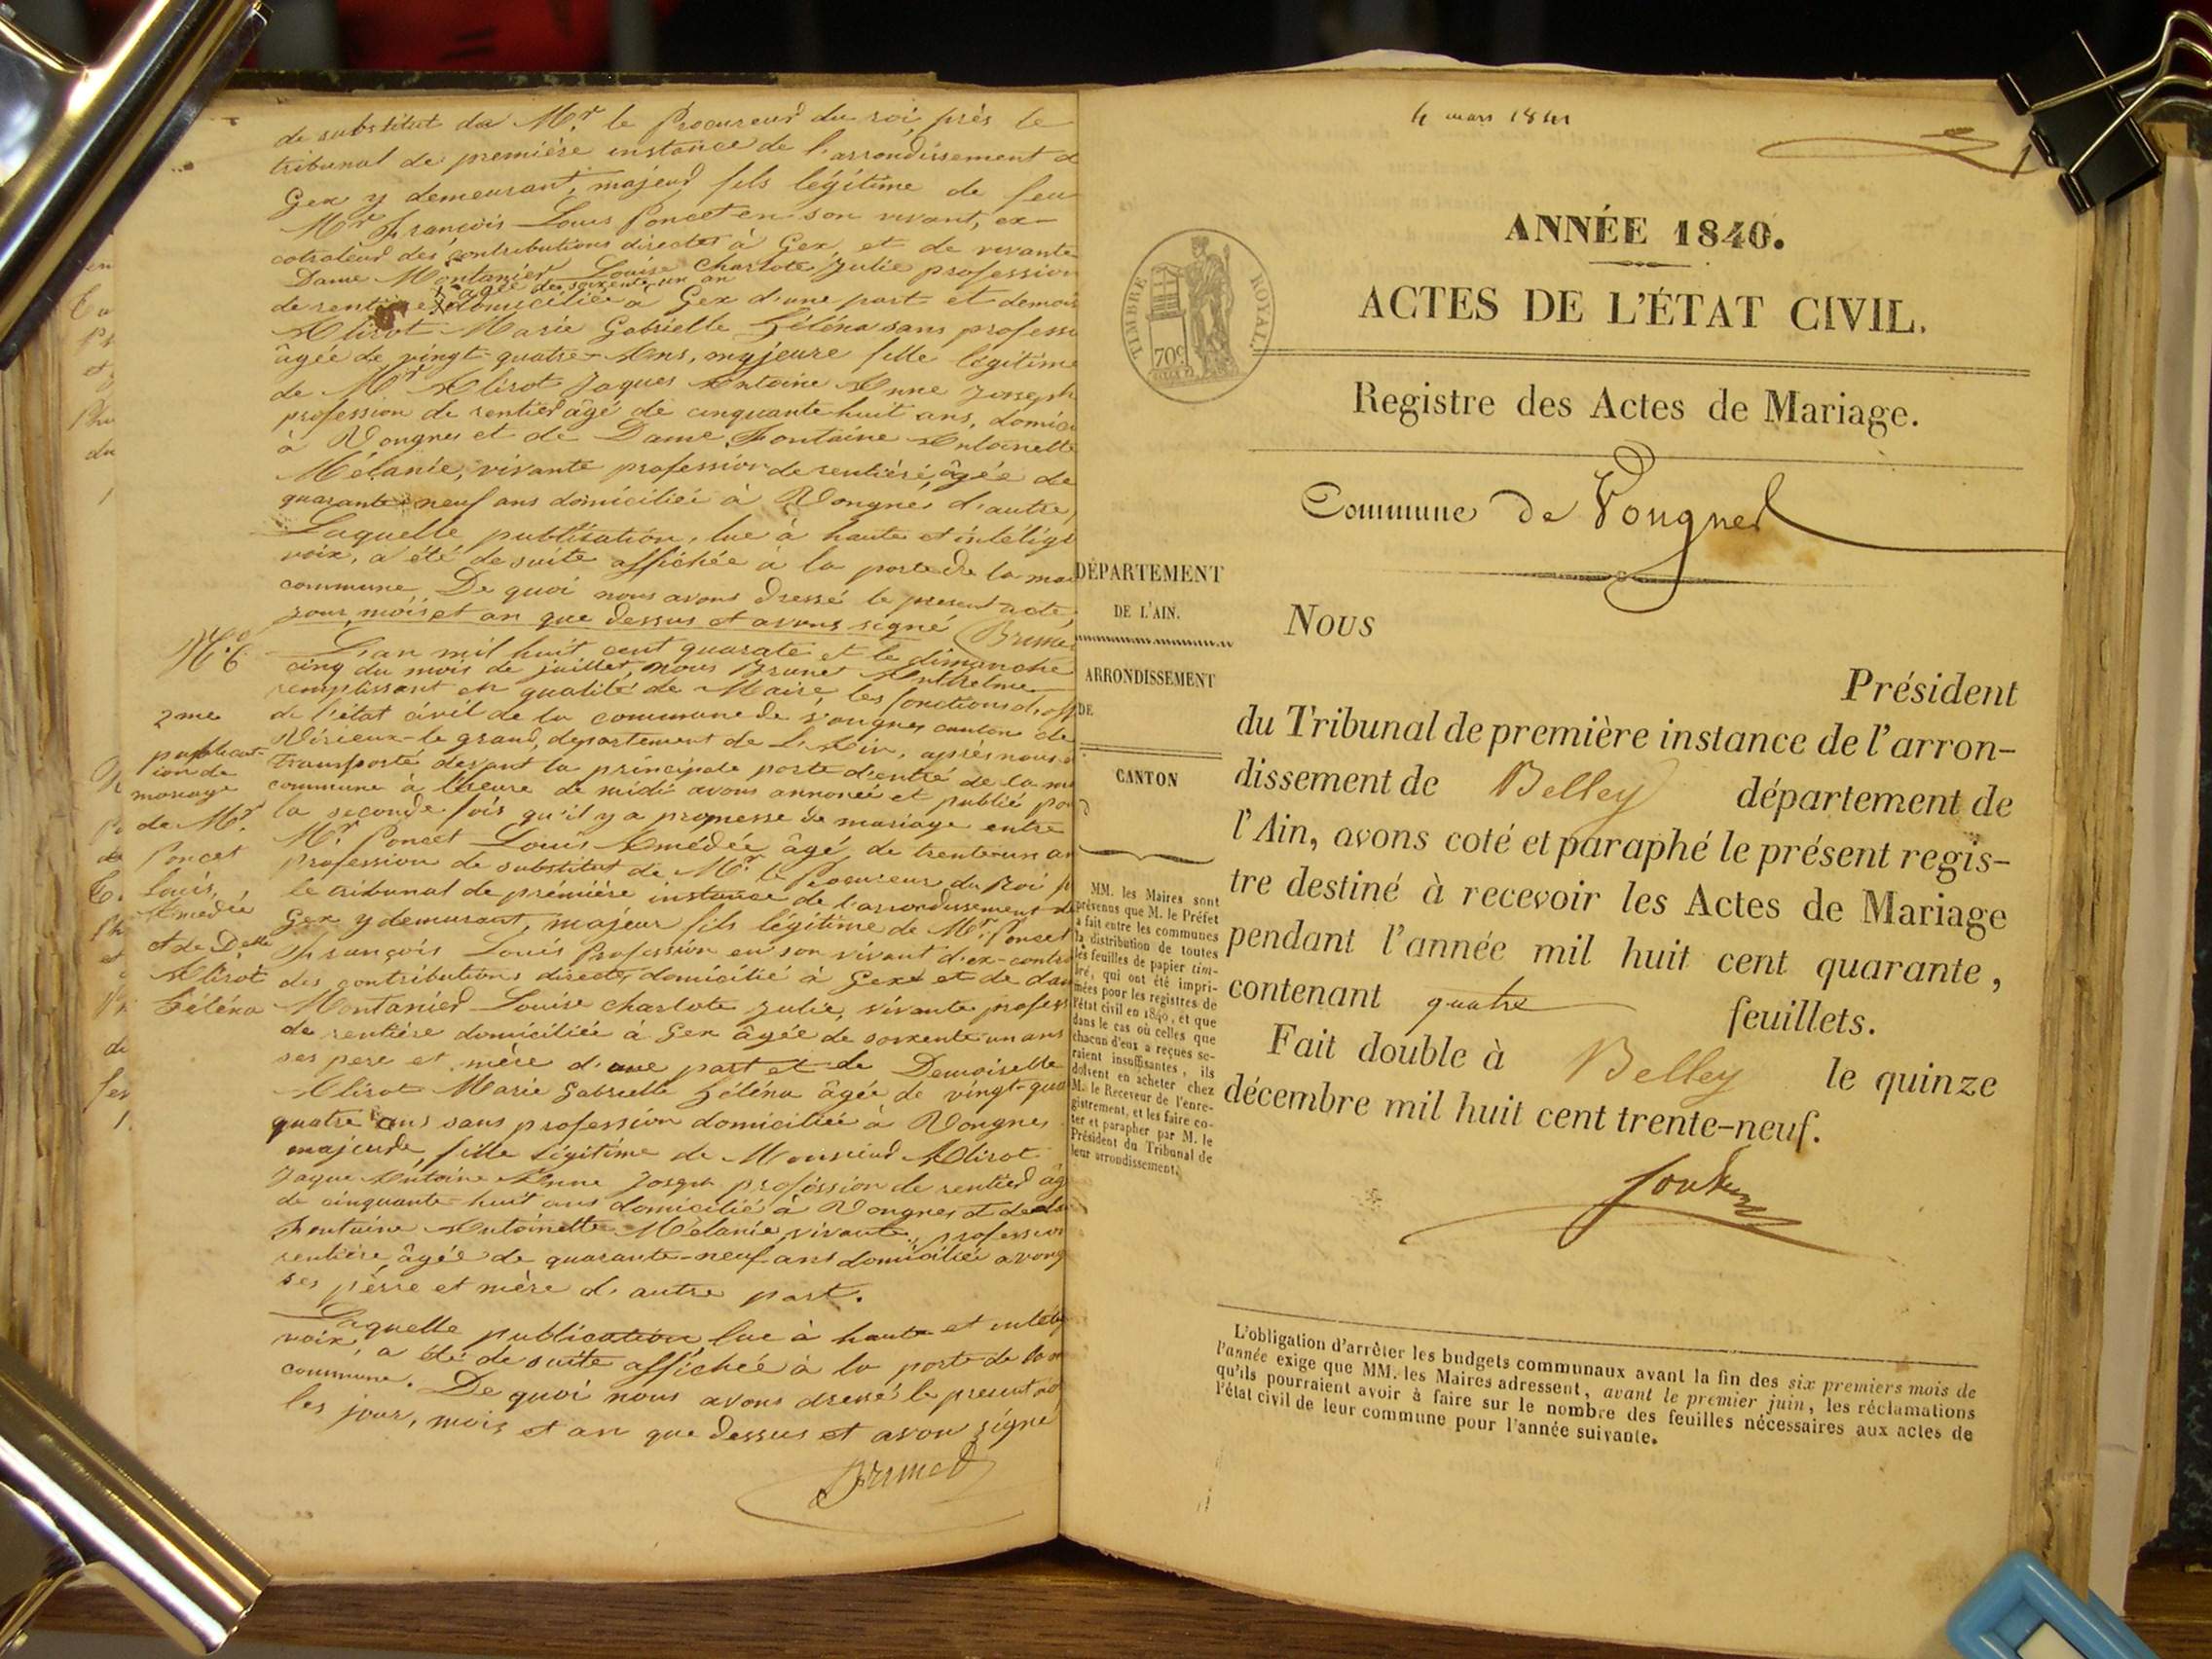 de substitut de Mr. le Procureur du roi, près le
tribunal de première instance de l'arrondissement d
Gex y demeurant, majeur fils légitime de feu
Mr. François Louis Poncet en son vivant, ex-
cotroleur des contributions directes à Gex, et de vivante
Dame Montanier Louise Charlote Julie profession
âgée de soixente un an
de rentière domiciliée à Gex d'une part et demois
Alirot Marie Gabrielle Héléna sans professi
âgée de vingt-quatre Ans, majeure fille légitime
de Mr. Alirot Jaques Antoine Anne Joseph
profession de rentier âgé de cinquante huit ans, domici
à Vongnes et de Dame, Fontaine Antoinette
Mélanie, vivante profession de rentière, âgée de
quarante neuf ans domiciliée à Vongnes d'autre,
Laquelle publication, lue à haute et intéligi
voix, a été de suite affichée à la porte de la mai
commune, De quoi nous avons dressé le present acte,
jour, mois et an que dessus et avons signé Brune
N.o 6
L'an mil huit cent quarate et le dimanche
cinq du mois de juillet, nous Brunet Anthelme
remplissant en qualité de Maire, les fonctions d'off
de l'état civil de la commune de Vongnes canton de
Virieux-le grand, departement de L'Ain, après nous
transporté devant la principale porte d'entré de la ma
commune à l'heure de midi avons annoncé et publié po
la seconde fois qu'il y a promesse de mariage entre
2me
publicat-
ion de
mariage
de Mr.
Poncet
Louis,
Amedée
et de Delle
Alirot
Héléna
Mr. Poncet Louis Amédée âgé de trente un an
profession de substitut de Mr. le Procureur du Roi p
le tribunal de première instance de l'arrondissement d
Gex y demurant, majeur fils légitime de Mr. Poncet
François Louis Profession en son vivant d'ex-contro
des contributions directes, domicilié à Gex et de dam
Montanier Louise charlote Julie, vivante profess
de rentière domiciliée à Gex âgée de soixente un ans
ses pere et mère d'une part et de Demoiselle
Alirot Marie Gabrielle Héléna âgée de vingt-qua
quatre ans sans profession domiciliée à Vongnes
majeure, fille légitime de Monsieur Alirot
Jaque Antoine Anne Josep profession de rentier âg
de cinquante-huit ans domicilié à Vongnes et de
Fontaine Antoinette Mélanie, vivante, profession
rentière, âgée de quarante-neuf ans domiciliée a vong
ses pèrre et mère d'autre part.
Laquelle publication, lue à haute et intelig
voix, a été de suite affichée à la porte de la m
commune. De quoi nous avons dressé le present ac
les jour, mois et an que dessus et avon signé
Brunet
4 mars 1841
1
TIMBRE ROYAL.
70c
ANNÉE 1840.
ACTES DE L'ÉTAT CIVIL.
Registre des Actes de Mariage.
Commune de Vongnes
DÉPARTEMENT
DE L'AIN.
ARRONDISSEMENT
DE
CANTON
D
MM. les Maires sont
prévenus que M. le Préfet
a fait entre les communes
la distribution de toutes
les feuilles de papier tim-
bré, qui ont été impri-
mées pour les registres de
l'état civil en 1840, et que
dans le cas où celles que
chacun d'eux a reçues se-
raient insuffisantes, ils
doivent en acheter chez
M. le Receveur de l'enre-
gistrement, et les faire co-
ter et parapher par M. le
Président du Tribunal de
leur arrondissement.
Nous
Président
du Tribunal de première instance de l'arron-
dissement de Belley département de
l'Ain, avons coté et paraphé le présent regis-
tre destiné à recevoir les Actes de Mariage
pendant l'année mil huit cent quarante,
contenant quatre feuillets.
Fait double à Belley le quinze
décembre mil huit cent trente-neuf.
L'obligation d'arrêter les budgets communaux avant la fin des six premiers mois de
l'année exige que MM. les Maires adressent, avant le premier juin, les réclamations
qu'ils pourraient avoir à faire sur le nombre des feuilles nécessaires aux actes de
l'état civil de leur commune pour l'année suivante.